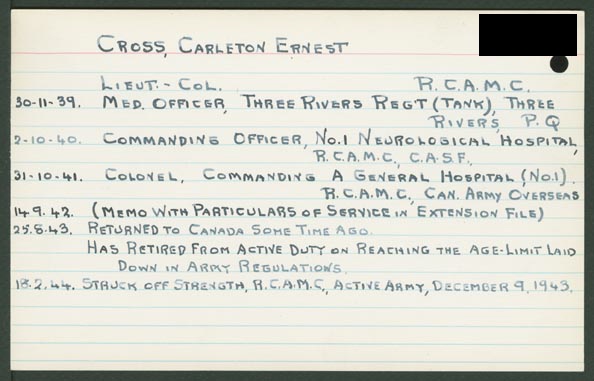 CROSS, CARLETON ERNEST
LIEUT.-COL. R.C.A.M.C.
30-11-39. MED. OFFICER, THREE RIVERS REGT (TANK), THREE
RIVERS, P.Q
2-10-40. COMMANDING OFFICER, NO.1 NEUROLOGICAL HOSPITAL,
R.C.A.M.C., C.A.S.F.
31-10-41. COLONEL, COMMANDING A GENERAL HOSPITAL (NO.1).
R.C.A.M.C., CAN. ARMY OVERSEAS
14.9.42. (MEMO WITH PARTICULARS OF SERVICE IN EXTENSION FILE)
25.8.43. RETURNED TO CANADA SOME TIME AGO.
HAS RETIRED FROM ACTIVE DUTY ON REACHING THE AGE-LIMIT LAID
DOWN IN ARMY REGULATIONS.
18.2.44. STRUCK OFF STRENGTH, R.C.A.M.C., ACTIVE ARMY, DECEMBER 9, 1943.